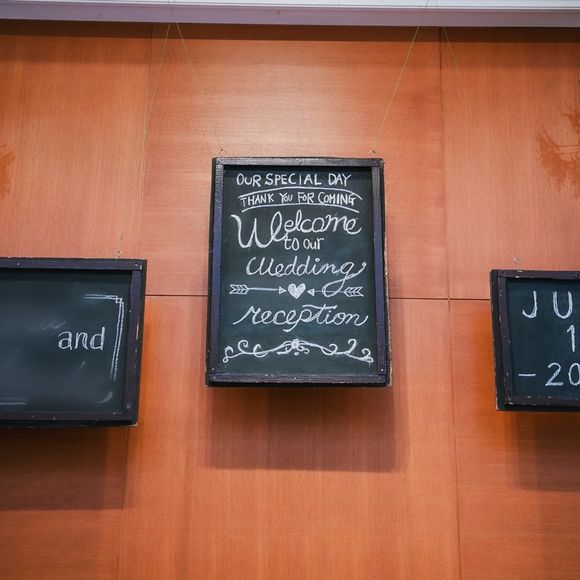 and
OUR SPECIAL DAY
THANK YOU FOR COMING
Welcome
to our
Wedding
reception
JU
1
-20